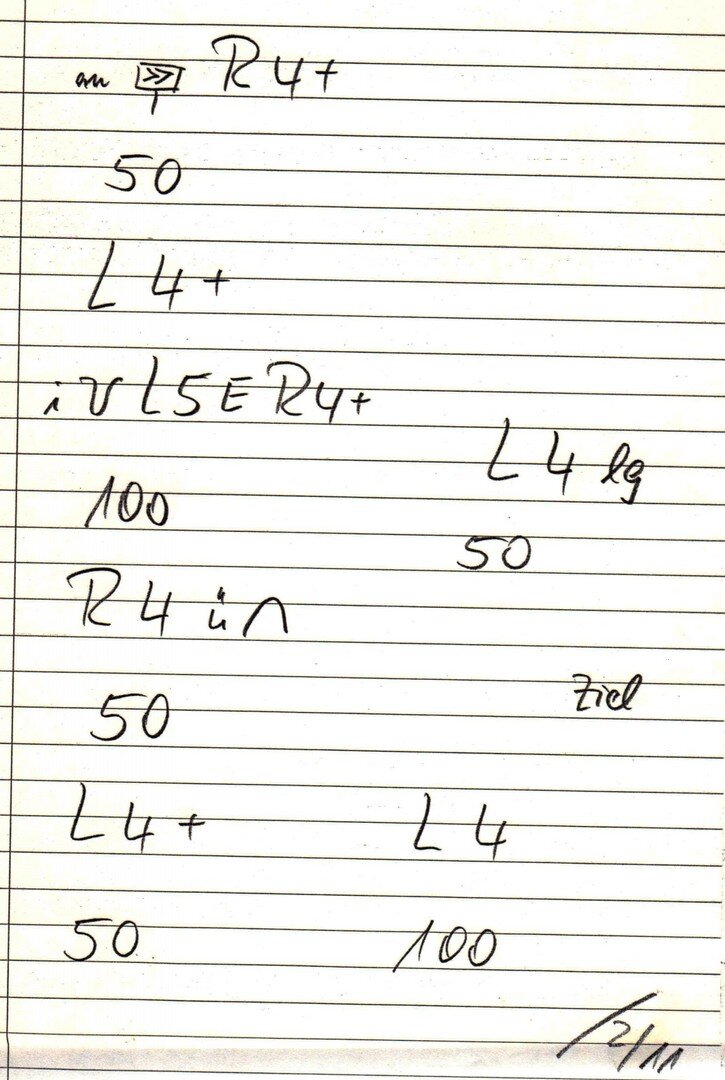 an >> R4+
50
L 4+
i V L5 E R4+
100
R 4 ü ∩
50
L 4 +
50
L 4 lg
50
Ziel
L 4
100
/2/11